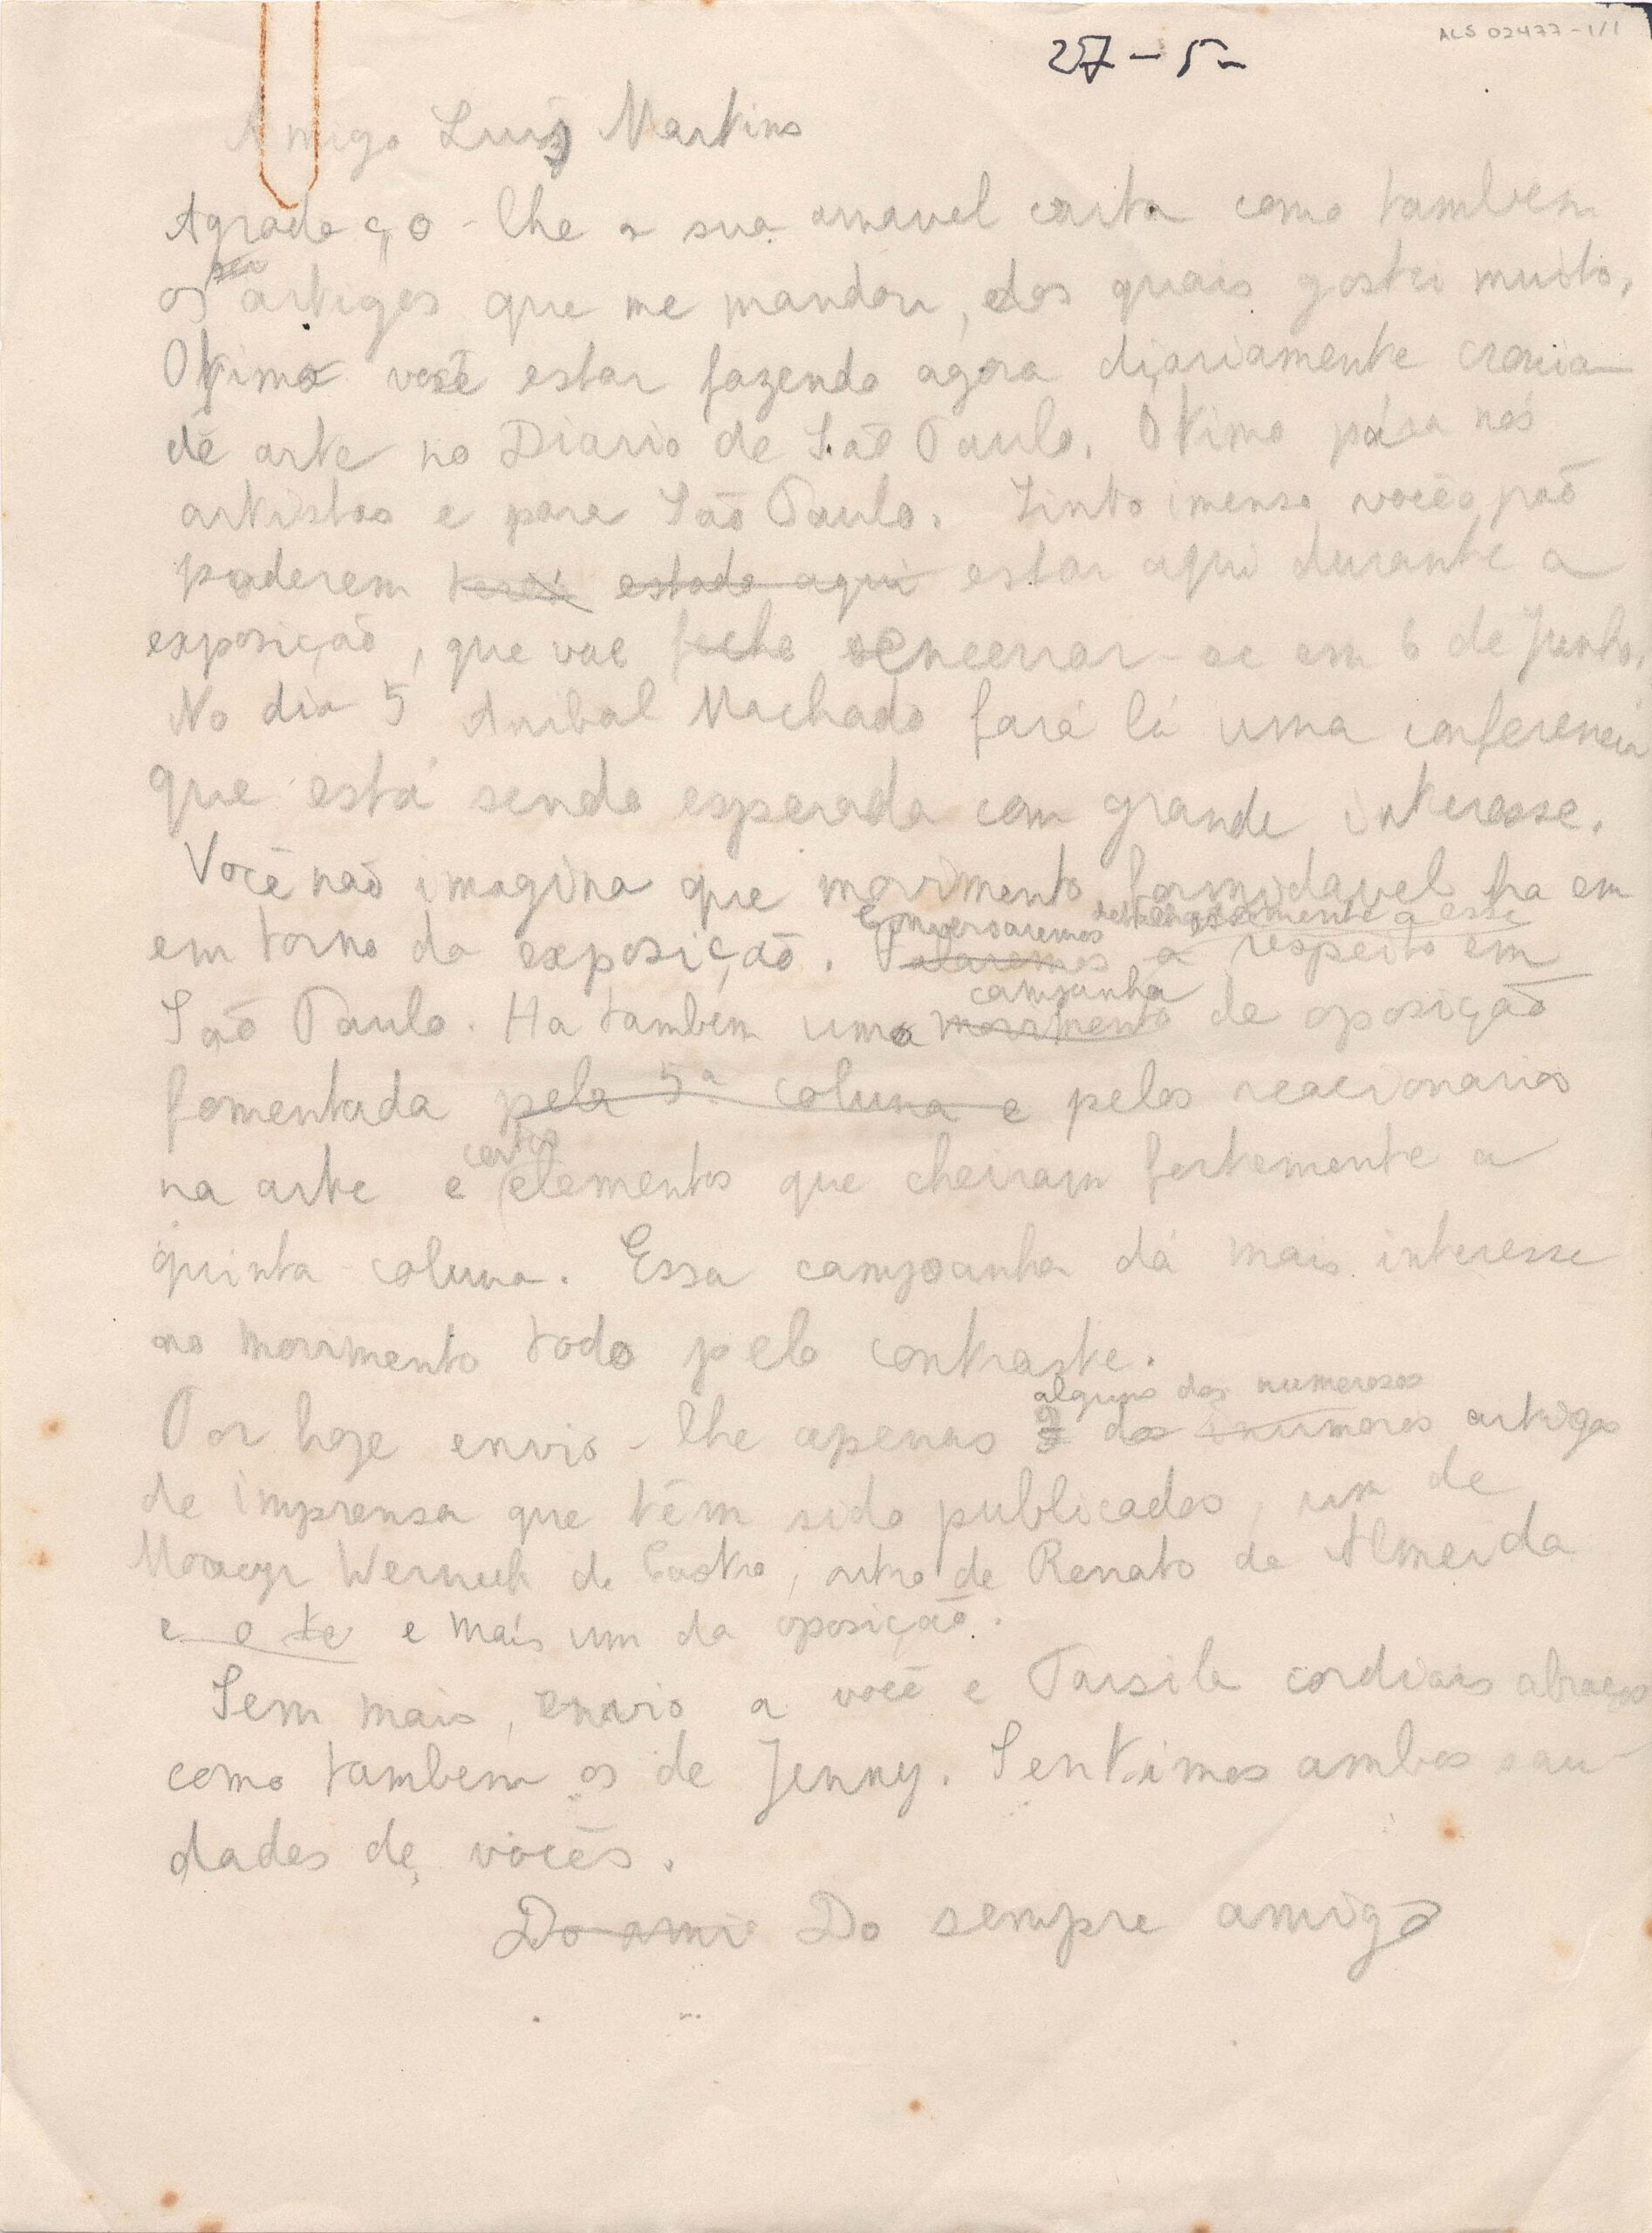 ALS 02477-1/1
27-5-
Amigo Luiz Martins
Agradeço-lhe a sua amavel carta como tambem
os artigos que me mandou, dos quais gostei muito.
Otimo você estar fazendo agora diariamente cronica
de arte no Diario de São Paulo. Otimo para nós
artistas e para São Paulo. Sinto imenso vocês não
poderem estado aqui estar aqui durante a
exposição, que vae fecha encerrar-se em 6 de Junho.
No dia 5 Anibal Machado fará lá uma conferencia
que está sendo esperada com grande interesse.
Você não imagina que movimento formidavel ha em
Conversaremos a esse
em torno da exposição. Falaremos a respeito em
campanha
São Paulo. Ha tambem uma movimento de oposição
fomentada pela 5ª coluna e pelos reacionarios
certos
na arte e elementos que cheiram fortemente a
quinta coluna. Essa campanha dá mais interesse
ao movimento todo pelo contraste.
alguns dos numerosos
Por hoje envio-lhe apenas dos inumeros artigos
de imprensa que têm sido publicados, um de
Moacyr Werneck de Castro, outro de Renato de Almeida
e o te e mais um da oposição.
Sem mais, envio a você e Tarsila cordiais abraços
como tambem os de Jenny. Sentimos ambos sau-
dades de vocês.
Do ami Do sempre amigo